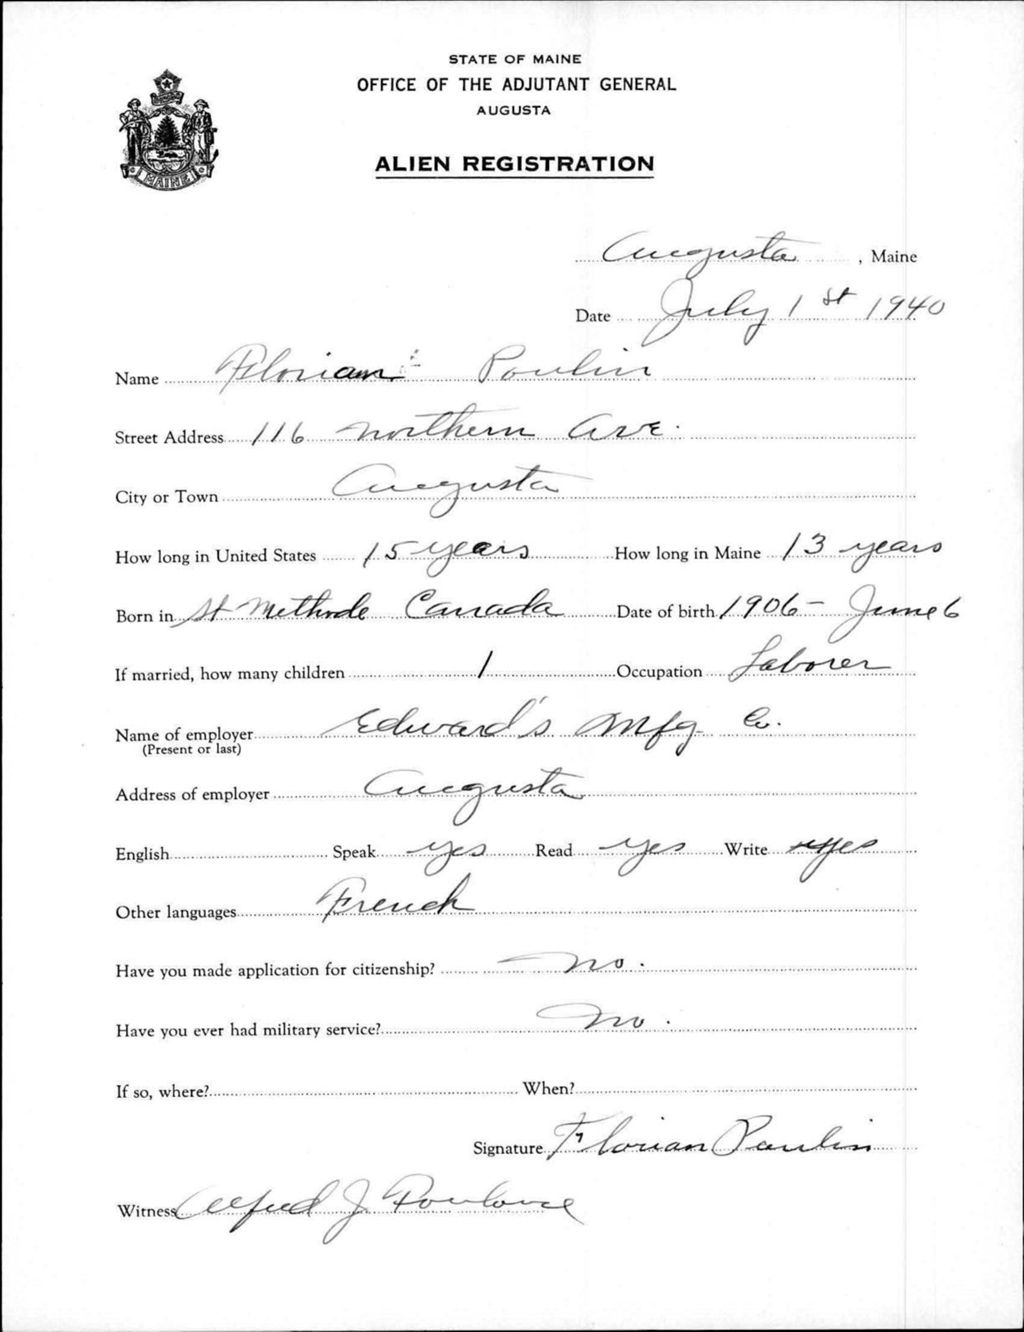 STATE OF MAINE
OFFICE OF THE ADJUTANT GENERAL
AUGUSTA
MAINE
ALIEN REGISTRATION
Augusta, Maine
Date July 1st 1940
Name Florian Poulin
Street Address 116 Northern Ave.
City or Town Augusta
How long in United States 15 years How long in Maine 13 years
Born in St Methode Canada Date of birth 1906 - June 6
If married, how many children 1 Occupation Laborer
Name of employer Edward's Mfg. Co.
(Present or last)
Address of employer Augusta
English Speak yes Read yes Write yes
Other languages French
Have you made application for citizenship? no.
Have you ever had military service? no.
If so, where? When?
Signature Florian Poulin
Witness Alfred J